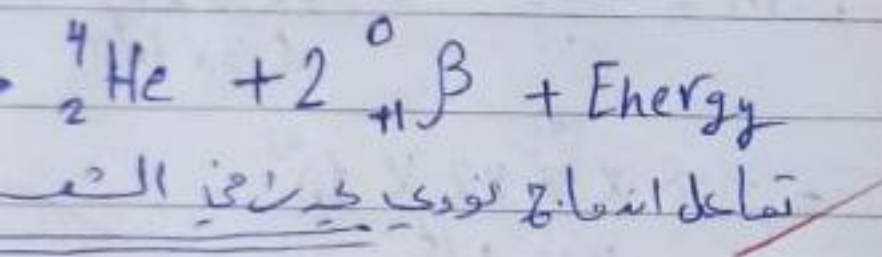 ⁴₂He + 2 ⁰₊₁β + Energy
تفاعل اندماج نووي يحدث في الشمس